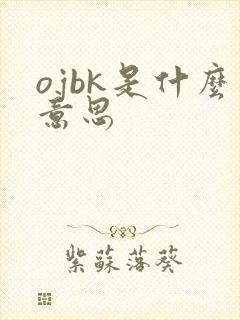 ojbk是什麼
意思
紫蘇落葵